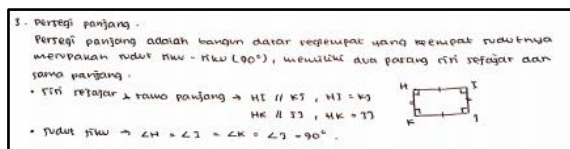 3. Persegi panjang.
Persegi panjang adalah bangun datar segiempat yang keempat sudutnya
merupakan sudut siku-siku (90°), memiliki dua pasang sisi sejajar dan
sama panjang.
• sisi sejajar & sama panjang → HI // KJ , HI = KJ
HK // IJ , HK = IJ
• sudut siku → ∠H = ∠I = ∠K = ∠J = 90°.
H I
K J